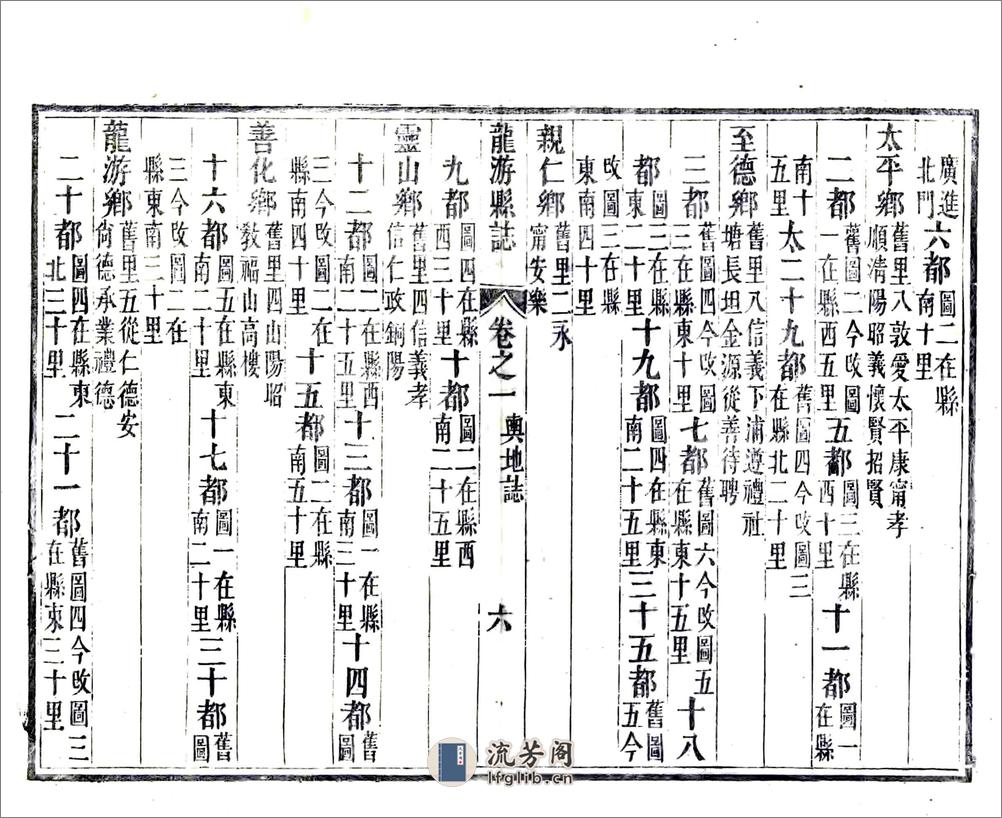 廣進北門六都圖二在縣南十里
太平鄉舊里八敦愛太平康甯孝順清陽昭義懷賢招賢
二都舊圖二今改圖一在縣西五里五都圖三在縣西十里十一都圖一在縣
南十五里太二十九都舊圖四今改圖三在縣北二十里
至德鄉舊里八信義下浦遵禮社塘長坦金源從善待聘
三都舊圖四今改圖三在縣東十里七都舊圖六今改圖五在縣東十五里十八
都圖三在縣東二十里十九都圖四在縣東南二十五里三十五都舊圖五今
改圖三在縣東南四十里
親仁鄉舊里二永甯安樂
龍游縣誌 卷之一 輿地誌 六
九都圖四在縣西三十里十都圖二在縣西南二十五里
靈山鄉舊里四信義孝信仁政銅陽
十二都圖二在縣西南二十五里十三都圖一在縣南三十里十四都舊圖
三今改圖二在縣南四十里十五都圖二在縣南五十里
善化鄉舊里四山陽昭教福山高樓
十六都圖五在縣東南二十里十七都圖一在縣南二十里三十都舊圖
三今改圖二在縣東南三十里
龍游鄉舊里五從仁德安尚德承業禮德
二十都圖四在縣東北三十里二十一都舊圖四今改圖三在縣東三十里
流芳阁
lfglib.cn